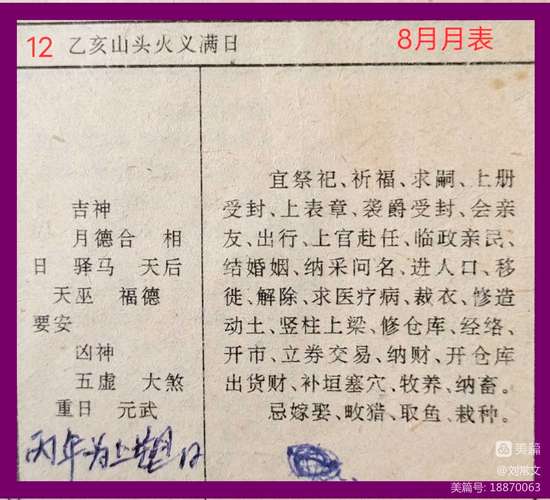 12 乙亥山头火义满日 8月月表
吉神
月德合 相
日 驿马 天后
天巫 福德
要安
凶神
五虚 大煞
重日 元武
宜祭祀、祈福、求嗣、上册
受封、上表章、袭爵受封、会亲
友、出行、上官赴任、临政亲民、
结婚姻、纳采问名、进人口、移
徙、解除、求医疗病、裁衣、修造
动土、竖柱上梁、修仓库、经络、
开市、立券交易、纳财、开仓库
出货财、补垣塞穴、牧养、纳畜。
忌嫁娶、畋猎、取鱼、栽种。
丙年为上
美篇
@刘常文
美篇号: 18870063